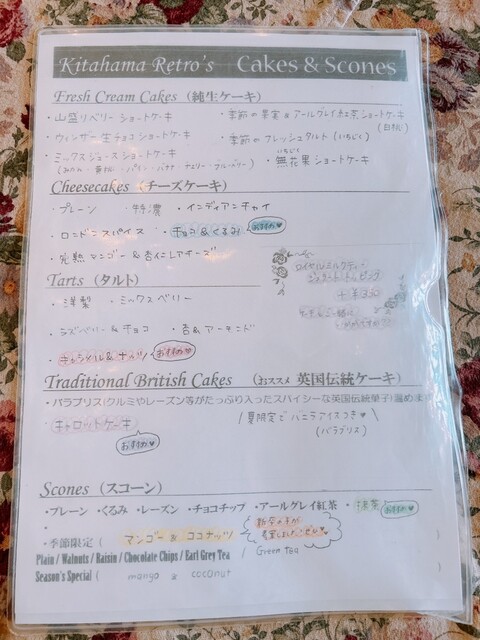 Kitahama Retro's Cakes & Scones
Fresh Cream Cakes (純生ケーキ)
・山盛りベリーショートケーキ ・季節の果実&アールグレイ紅茶ショートケーキ
(白桃)
・ウィンザー生チョコショートケーキ ・季節のフレッシュタルト (いちじく)
・ミックスジュースショートケーキ ・無花果ショートケーキ
いちじく
(みかん・黄桃・パイン・バナナ・チェリー・ブルーベリー)
Cheesecakes (チーズケーキ)
・プレーン ・特濃 ・インディアンチャイ
・ロンドンスパイス ・チョコ&くるみ おすすめ♥
・完熟マンゴー&杏仁レアチーズ
Tarts (タルト)
ロイヤルミルクティー
・洋梨 ・ミックスベリー
・ラズベリー&チョコ ・杏&アーモンド
・キャラメル&ナッツ おすすめ♥
Traditional British Cakes (おススメ 英国伝統ケーキ)
・パラプリス(クルミやレーズン等がたっぷり入ったスパイシーな英国伝統菓子)温めます
・キャロットケーキ \夏限定でバニラアイスつき♥/
おすすめ♥ (パラプリス)
Scones (スコーン)
・プレーン ・くるみ ・レーズン ・チョコチップ ・アールグレイ紅茶 ・抹茶 おすすめ♥
・季節限定 ( マンゴー&ココナッツ )
Plain / Walnuts / Raisin / Chocolate Chips / Earl Grey Tea / Green tea
Season's Special ( mango & coconut )